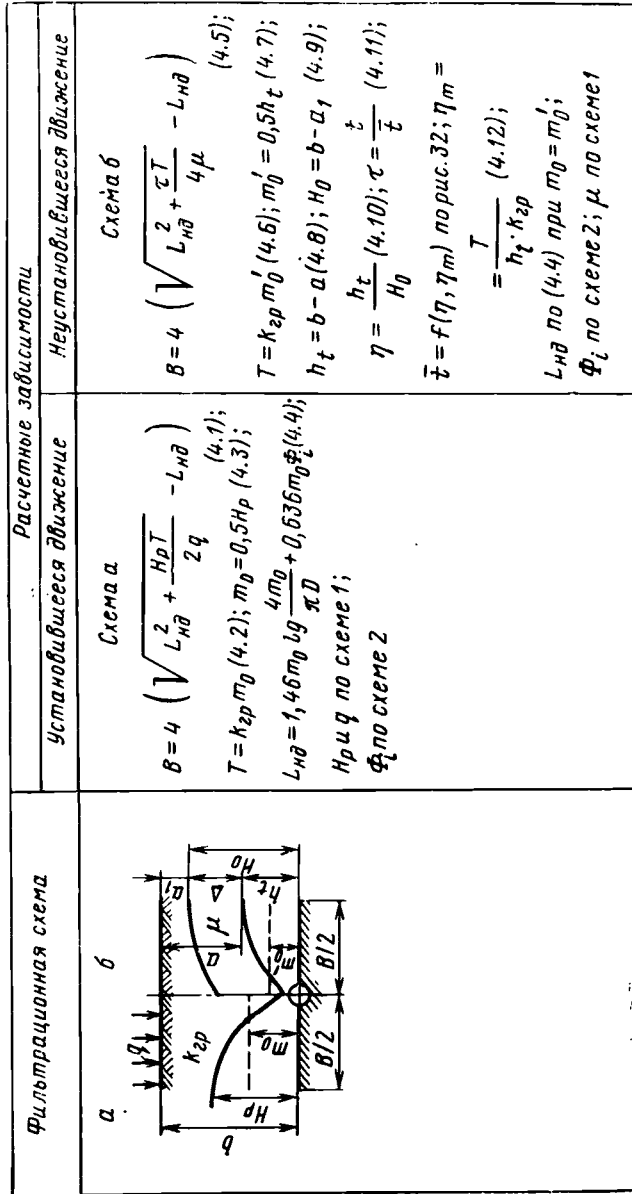 Фильтрационная схема
Расчетные зависимости
Установившееся движение
Неустановившееся движение
а
б
q
kгр
a₁
a
μ
Δ
H₀
hₜ
b
Hр
m₀
m₀′
B/2
B/2
Схема а
B = 4 (√(L²нд + HрT/2q) − Lнд)
(4.1);
T = kгр m₀ (4.2); m₀ = 0,5Hр (4.3);
Lнд = 1,46m₀ lg 4m₀/πD + 0,636m₀Фᵢ (4.4);
Hр и q по схеме 1;
Фᵢ по схеме 2
Схема б
B = 4 (√(L²нд + τT/4μ) − Lнд)
(4.5);
T = kгр m₀′ (4.6); m₀′ = 0,5hₜ (4.7);
hₜ = b − a (4.8); H₀ = b − a₁ (4.9);
η = hₜ/H₀ (4.10); τ = t/t̄ (4.11);
t̄ = f(η, ηm) по рис. 32; ηm =
= T/hₜ·kгр (4.12);
Lнд по (4.4) при m₀ = m₀′;
Фᵢ по схеме 2; μ по схеме 1